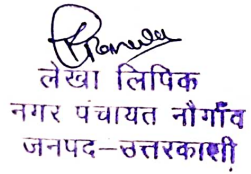 लेखा लिपिक
नगर पंचायत नौगाँव
जनपद–उत्तरकाशी